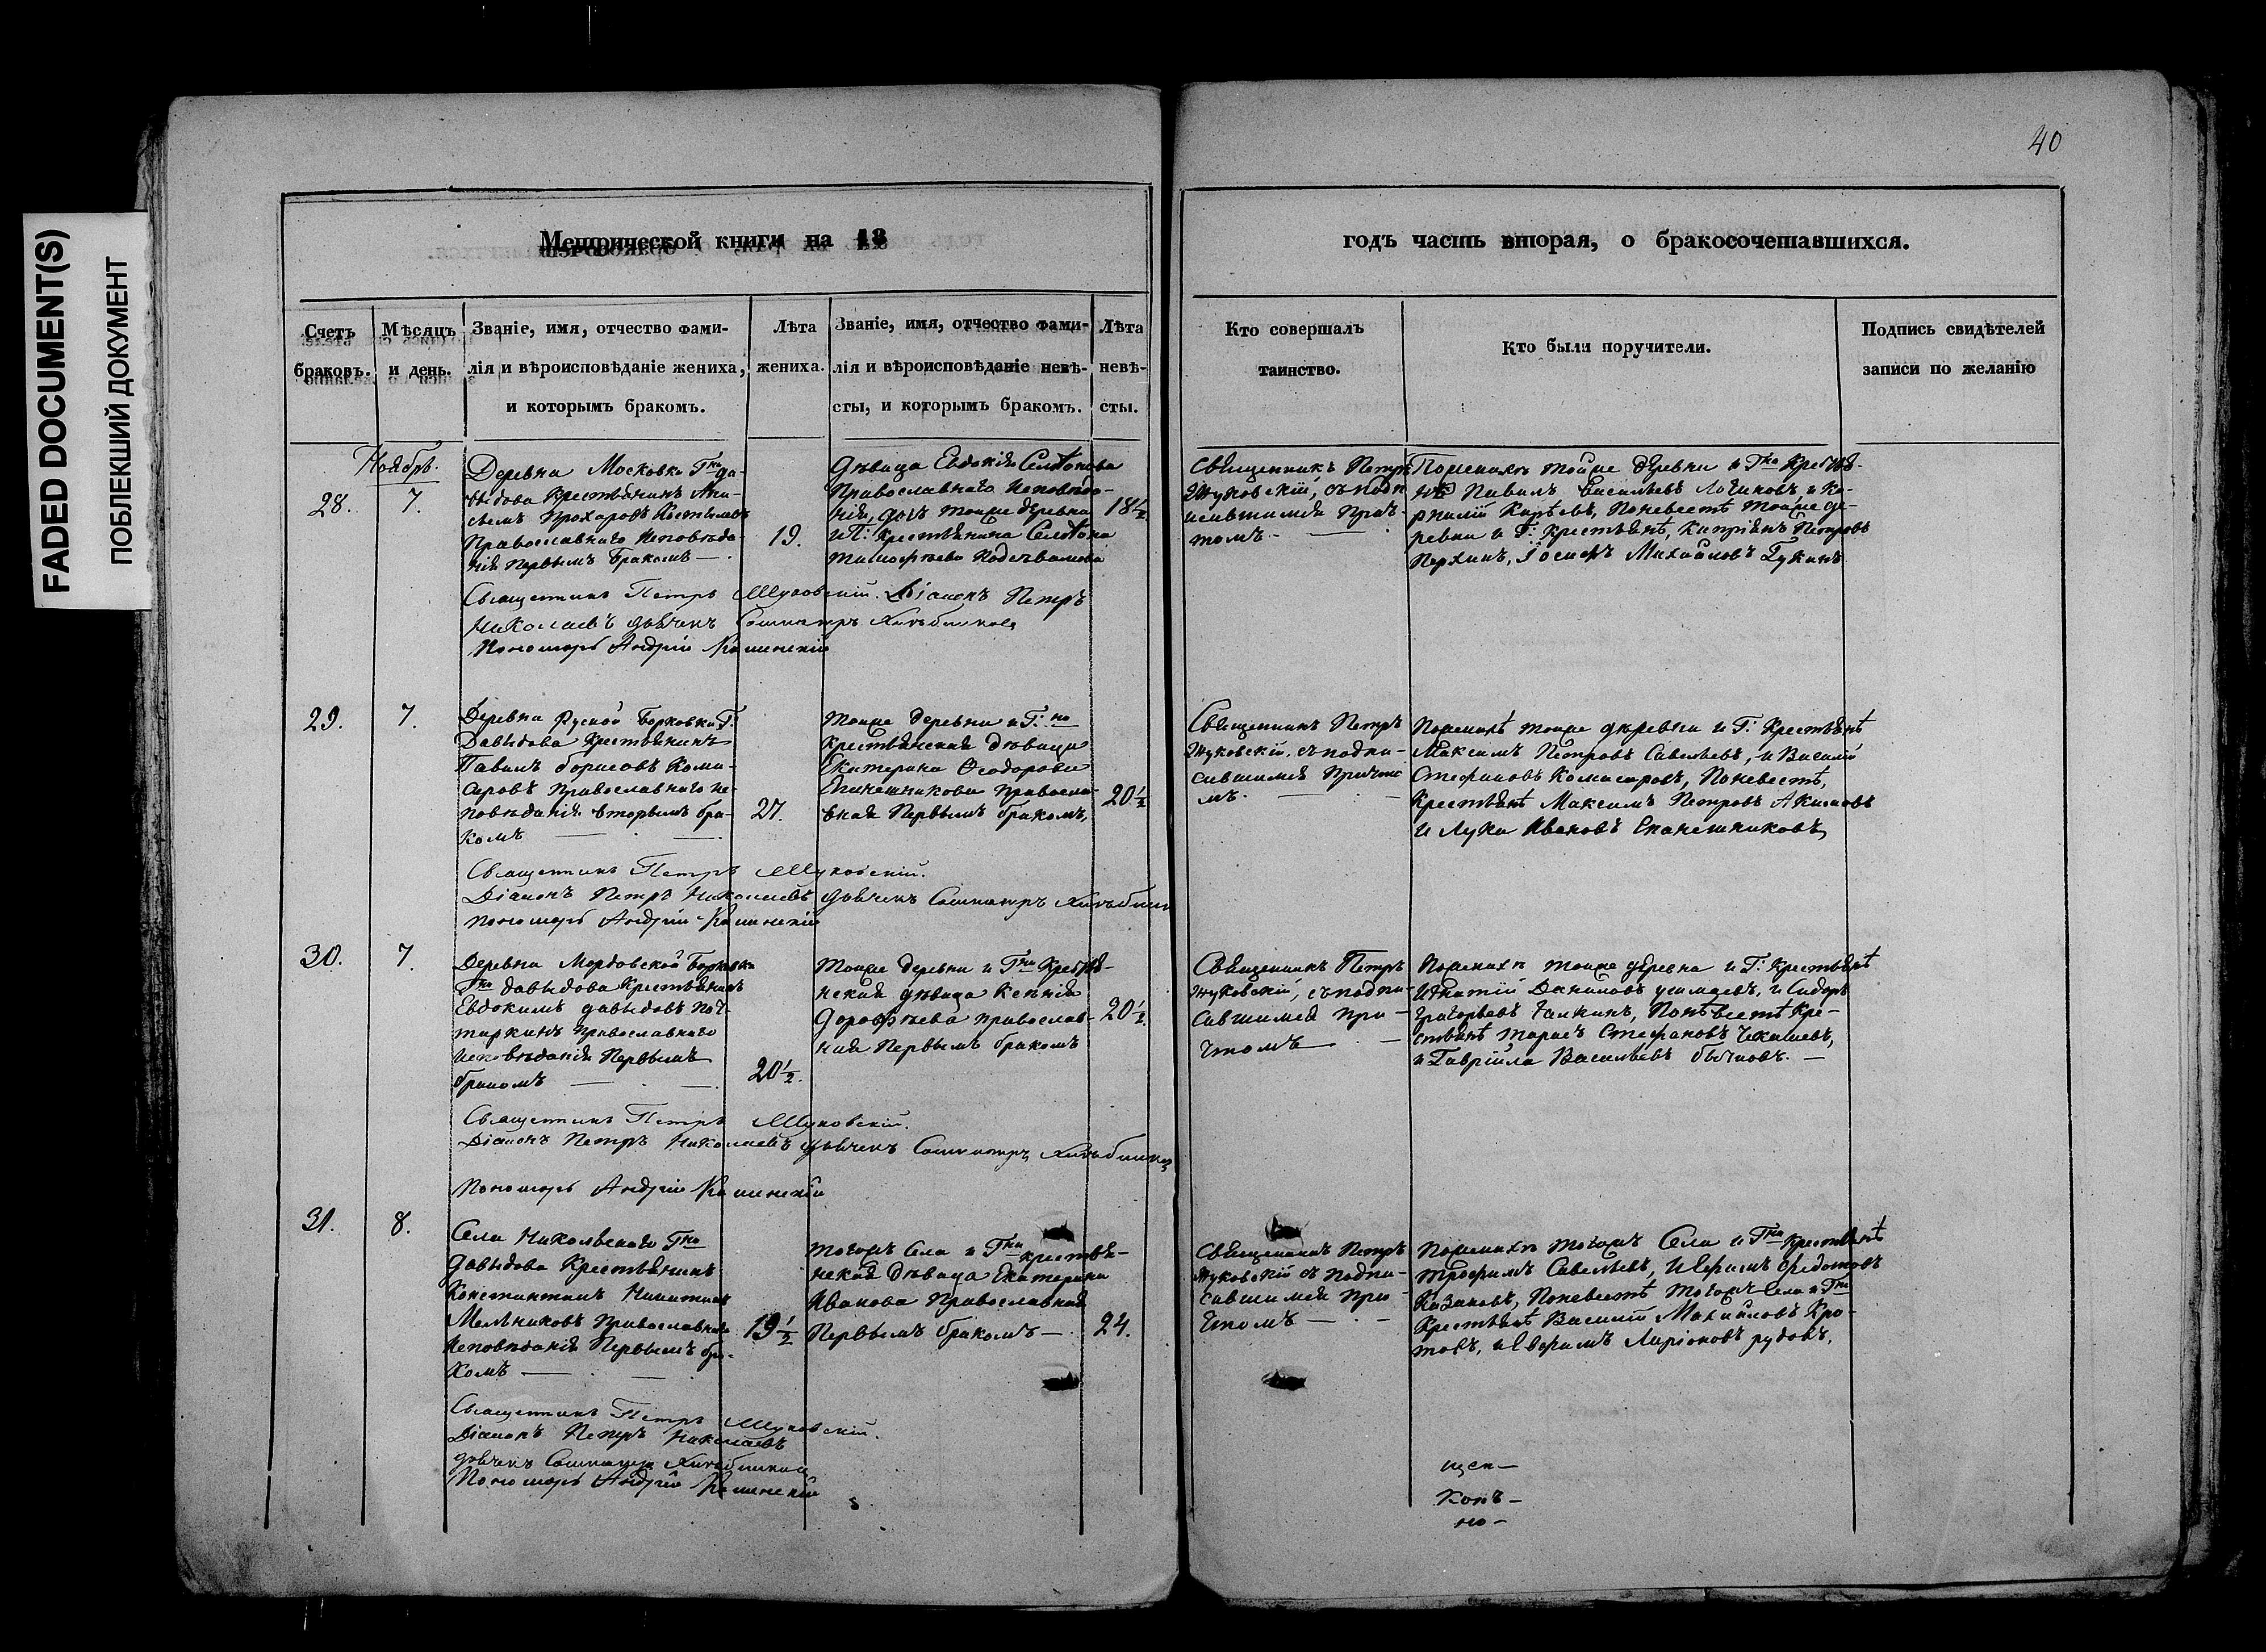 FADED DOCUMENT(S)
ПОБЛЕКШИЙ ДОКУМЕНТ
40
Метрической книги на 18
годъ часть вторая, о бракосочетавшихся.
Счетъ браковъ.
Мѣсяцъ и день.
Званіе, имя, отчество фами-
лія и вѣроисповѣданіе жениха,
и которымъ бракомъ.
Лѣта жениха.
Званіе, имя, отчество фами-
лія и вѣроисповѣданіе невѣ-
сты, и которымъ бракомъ.
Лѣта невѣ-
сты.
Кто совершалъ
таинство.
Кто были поручители.
Подпись свидѣтелей
записи по желанію
Ноябрь.
28.
7.
Деревна Московки Гна Да-
выдова Крестьянинъ
Прохоровъ
Православнаго Исповѣда-
нія Первымъ бракомъ —
19.
дѣвица Евдокія
Православнаго Исповѣда-
нія, дочь тойже деревни
и Г: Крестьянина
Тимофѣева
18½
Священникъ Петръ
Жуковскій, съ подп
исавшимся прич-
томъ. —
тойже деревни и Гна Кресть
Павелъ Васильевъ Логиновъ, и Ко-
рнилій Поневестѣ тойже де-
ревни и Г: Крестьянѣ, Кипріянъ Петровъ
Іосифъ Михайловъ
Священникъ Петръ Жуковскій. Діаконъ Петръ
Николаевъ дьячекъ
Пономарь Андрей
29.
7.
Деревна Руской Борковки Г:
Давыдова Крестьянинъ
Павелъ Борисовъ Коми-
саровъ Православнаго ис-
повѣданія вторымъ бра-
комъ
27.
тойже деревни и Г:на
Крестьянская дѣвица
Екатерина Ѳеодорова
Православ-
ная Первымъ бракомъ,
20½
Священникъ Петръ
Жуковскій, съ подпи-
савшимся Причто
мъ. —
тойже деревни и Г: Крестьянѣ
Максимъ Петровъ Савельевъ, и Василій
Стефановъ Комисаровъ, Поневестѣ,
Крестьянѣ Максимъ Петровъ Акимовъ
и Лука Ивановъ
Священникъ Петръ Жуковскій.
Діаконъ Петръ Николаевъ дьячекъ
пономарь Андрей
30.
7.
Деревна Мордовской Борковки
Гна Давыдова Крестьянинъ
Евдокимъ Давыдовъ
Православнаго
исповѣданія Первымъ
бракомъ —
20½.
тойже деревни и Гна Крестья-
нская дѣвица Ксенія
Дорофѣева православ-
ная Первымъ бракомъ
20½.
Священникъ Петръ
Жуковскій, съ подпи-
савшимся при-
чтомъ —
тойже деревна и Г: Крестьянѣ
Игнатій Даниловъ и Сидоръ
Григорьевъ Поневестѣ Кре-
стьянѣ Тарасъ Стефановъ
и Гаврійла Васильевъ Бычковъ. —
Священникъ Петръ Жуковскій.
Діаконъ Петръ Николаевъ дьячекъ
Пономарь Андрей
31.
8.
Села Никольскаго Гна
Давыдова Крестьянинъ
Константинъ Никитинъ
Мельниковъ Православнаго
Исповѣданія Первымъ бра-
комъ —
19½
тогожъ Села и Гна крестья-
нская дѣвица Екатерина
Иванова Православная
Первымъ бракомъ —
24.
Священникъ Петръ
Жуковскій съ подпи-
савшимся при-
чтомъ —
тогожъ Села и Гна Крестьянѣ
Трофимъ Савельевъ, и Ефимъ Ѳедотовъ
Казаковъ, Поневестѣ тогожъ Села и Гна
Крестьянѣ Василій Михайловъ Кро-
товъ, и Ефимъ Ларіоновъ Рудовъ,
Священникъ Петръ Жуковскій.
Діаконъ Петръ Николаевъ
дьячекъ
Пономарь Андрей
щен-
конъ-
но-